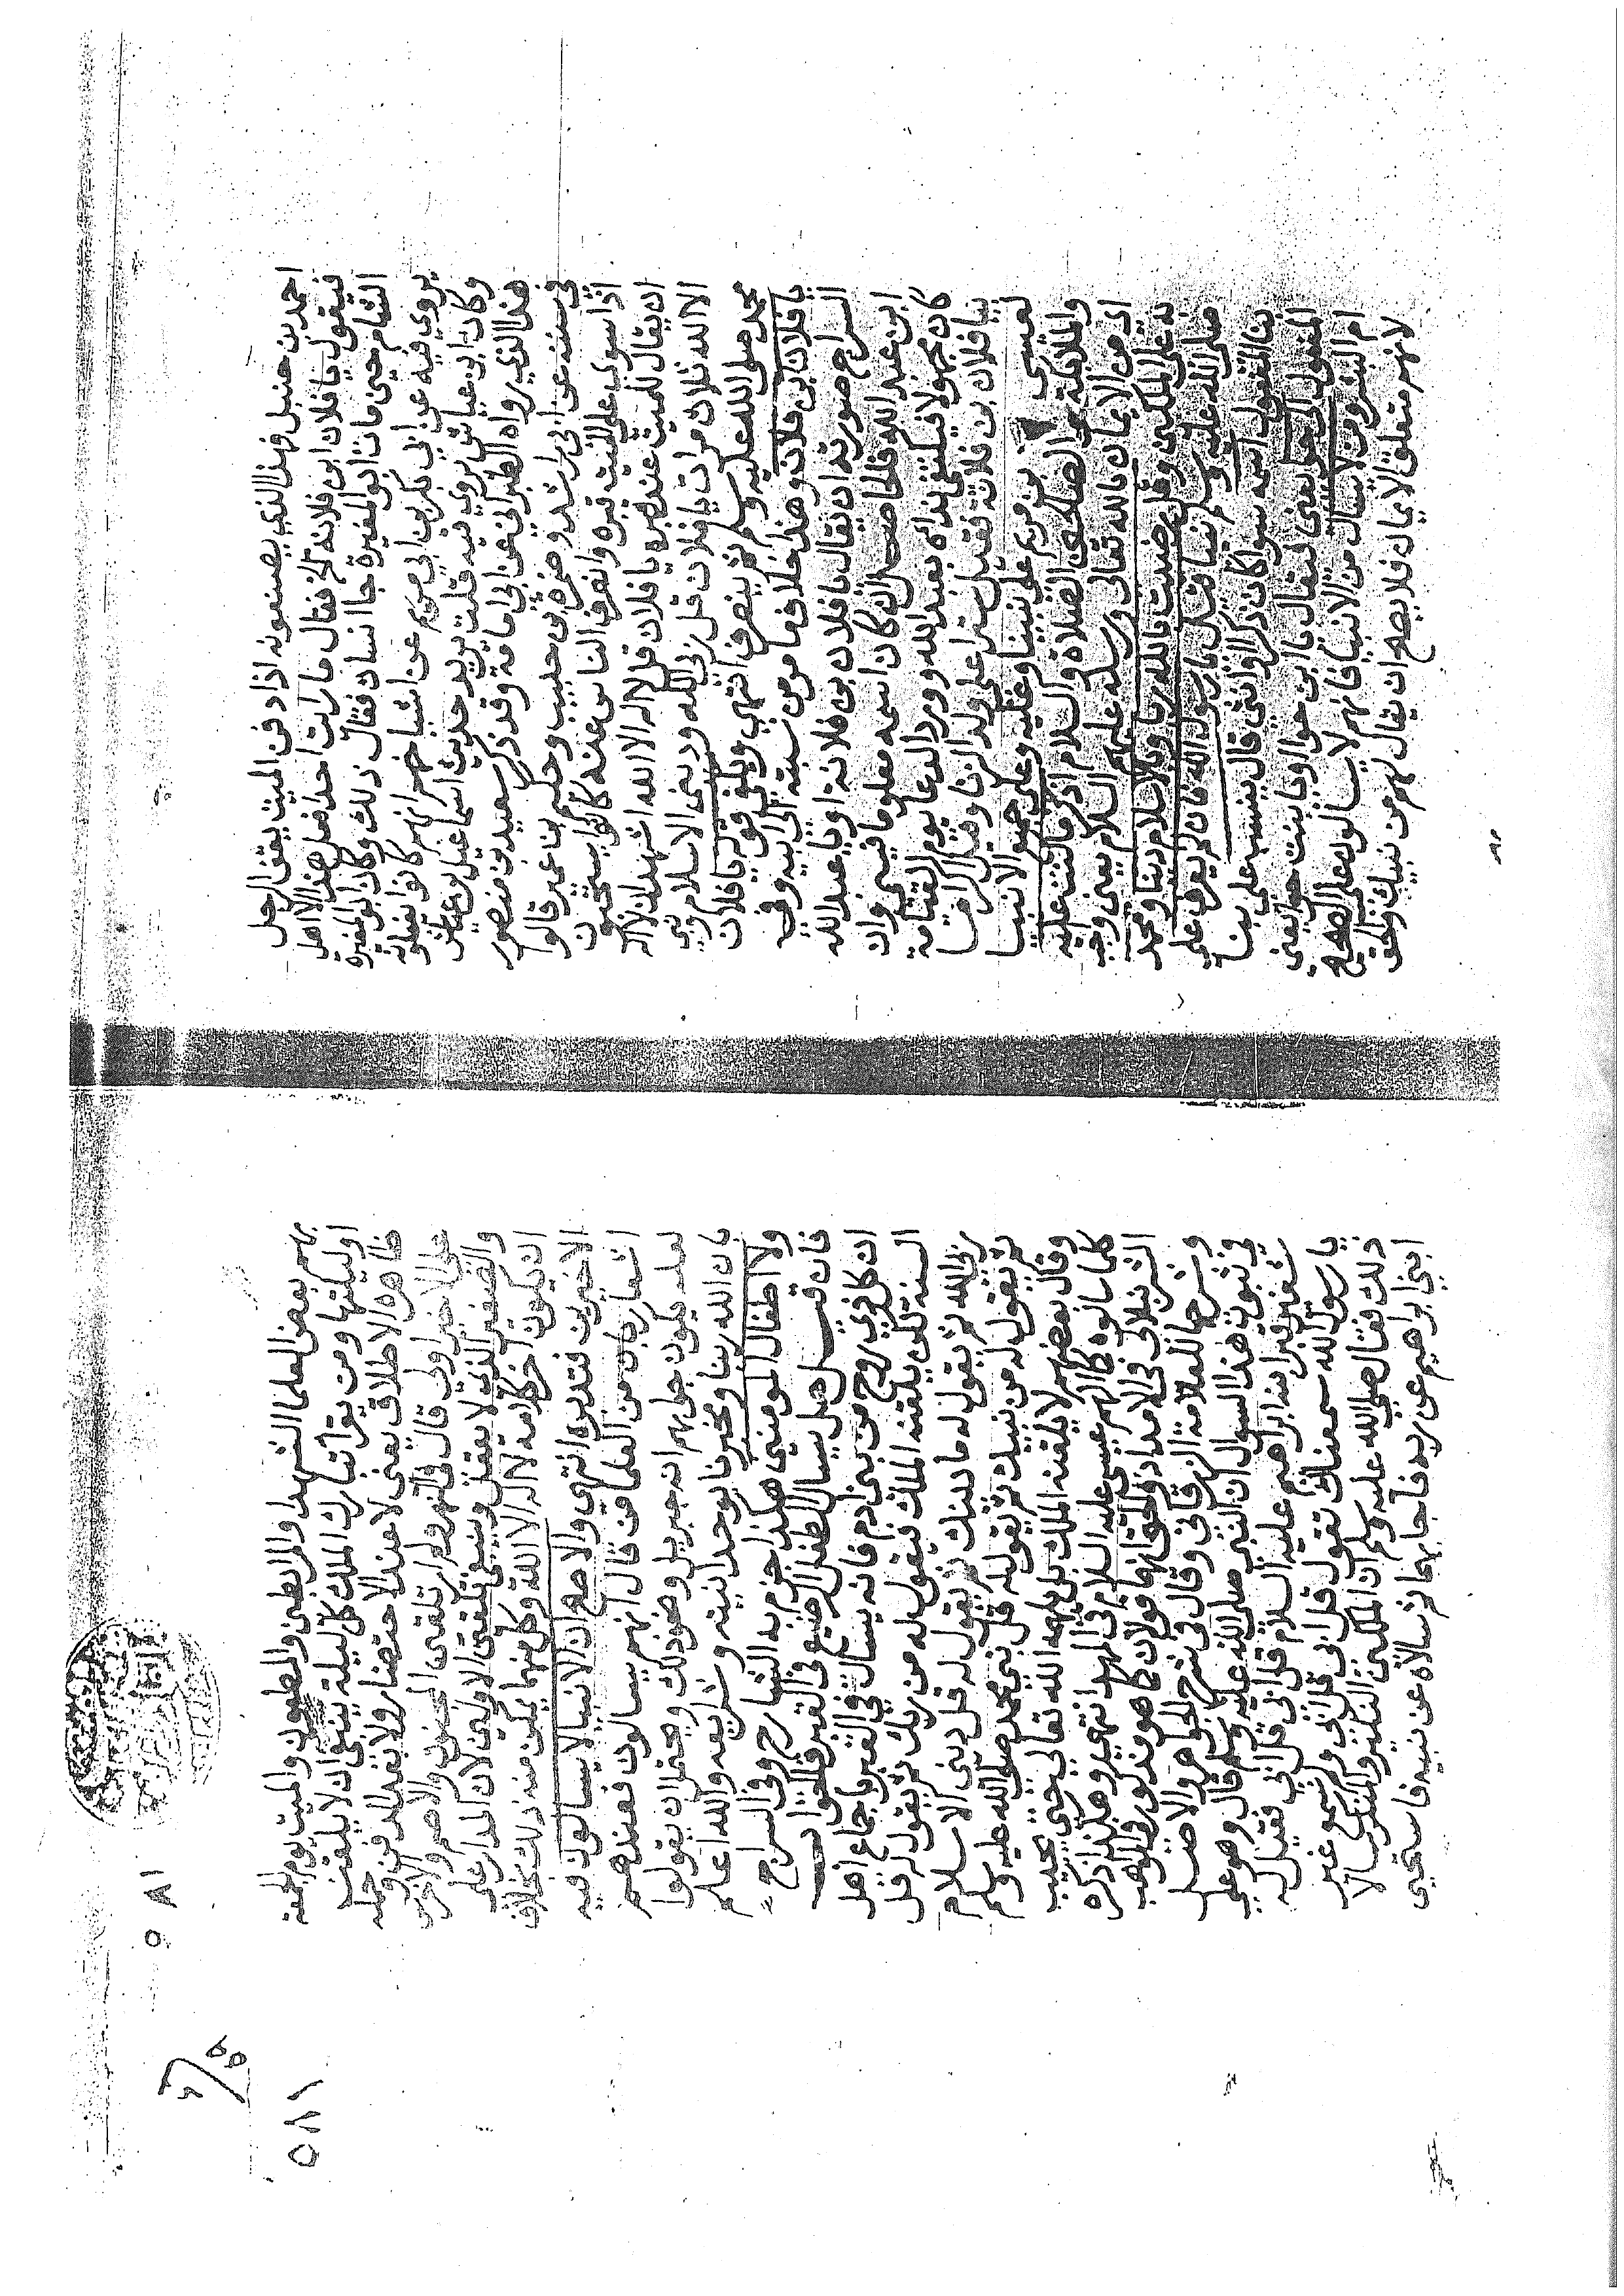 احمد بن حنبل فهذا الذي يصنعونه اذا دفن الميت يقف الرجل
فيقول يا فلان ابن فلانة الخ فقال ما رايت احدا فعل هذا الا اهل
الشام حين مات ابو المغيرة جا انسان فقال ذلك وكان ابو المغيرة
يروي فيه عن ابي بكر بن ابي مريم عن اشياخهم انهم كانوا يفعلونه
وكان ابن عياش يروي فيه قلت يريد حديث اسماعيل بن عياش
هذا الذي رواه الطبراني عن ابي امامة وقد ذكر سعيد بن منصور
في سننه عن ابي راشد وضمرة بن حبيب وحكيم بن عمير قالوا
اذا سوي على الميت قبره وانصرف الناس عنه كانوا يستحبون
ان يقال للميت عند قبره يا فلان قل لا اله الا الله اشهد ان لا اله
الا الله ثلاث مرات يا فلان قل ربي الله وديني الاسلام ونبي
محمد صلى الله عليه وسلم ثم ينصرف انتهى ويكفي قوله يا فلان
يا فلان ابن فلان وهذا خلاف ما مر من نسبته الى ابيه وفي
السراج صورته ان يقال يا فلان بن فلانة او يا عبد الله
ابن عبد الله فالحاصل ان كان اسمه معلوما فيسمى وان
كان مجهولا فيكتفى نداه بعبد الله وورد الدعا يوم القيامة
بيا فلان بن فلانة فقيل سترا على ولد الزنا وقيل اكراما
لعيسى بن مريم على نبينا وعليه وعلى جميع الانبيا
والملائكة والصالحين الصلاة والسلام اذكر ما كنت عليه
اي من الايمان بالله تعالى ورسله عليهم السلام يعني واجبه
به على الملكين وقل رضيت بالله ربا وبالاسلام دينا وبمحمد
صلى الله عليه وسلم نبيا قيل يا رسول الله فان لم يعرف على
بنا المفعول اسمه سوا كان ذكرا او انثى قال ينسب على بنا
المفعول الى حوا يعني فيقال يا ابن حوا او يا بنت حوا يعني
ام البشر ومن لا يسال من الانبيا فانهم لا يسالون على الصحيح
لانهم متعلق الايمان فلا يصح ان يقال لهم من نبيك والحق
بهم بعض العلما الشهدا والمرابطين والمطعون والميت يوم الجمعة
اوليلتها ومن يقرا تبارك الملك كل ليلة ينبغي ان لا يلقن
ظاهره الاطلاق يعني لا عند الاحتضار ولا بعد الدفن وحمله
على الاخير اولى قال في النهر ولم ار تلقين المجنون والاصم والاخرس
والصغير الذي لا يعقل وينبغي تلقين الاولين لان المدار على
ان يكون اخر كلامه لا اله الا الله وكل منهما يمكن منه ذلك بخلاف
الاخيرين فتدبره انتهى والاصح ان الانبيا لا يسالون فيه
اشعار بان من العلما من قال انهم يسالون فعندهم
لعله يكون جوابهم انه جبريل ونحو ذلك ويحتمل ان يقولوا
بان الله ربنا ومخبرنا بوحدانيته وشريعه والله اعلم
ولا اطفال المومنين هكذا جزم به الشارح وفي السراج
فان قيل هل يسال الطفل الرضيع في القبر فالجواب
ان كل ذي روح من بني ادم فانه يسال في القبر باجماع اهل
السنة لكن يلقنه الملك فيقول له من ربك ثم يقول له قل
ربي الله ثم يقول له ما دينك ثم يقول له قل ديني الاسلام
ثم يقول له من نبيك ثم يقول له قل نبي محمد صلى الله عليه وسلم
وقال بعضهم لا يلقنه الملك بل يلهمه الله تعالى حتى يجيب
كما سالوه كالهم عيسى عليه السلام في المهد انتهى وهكذا ذكره
الشرنبلالي في الامداد فالحق انهما قولان كما هو مذكور في المواهب
وشرحها للعلامة الزرقاني وقال في شرح الجواهر والاصيل
في ثبوت هذا السوال ان النبي صلى الله عليه وسلم قال وهو على
شفير قبر ابنه ابراهيم عليه السلام قل اني قل اني فقيل له
يا رسول الله سمعناك تقول قل اني قل اني ولم نسمع غير
ذلك فقال صلى الله عليه وسلم ان الملكين النكير والمنكر سالا
ابني ابراهيم عن ربه فاجابهما ثم سالاه عن نبيه فاستحيى
٥٨١
٥٨١